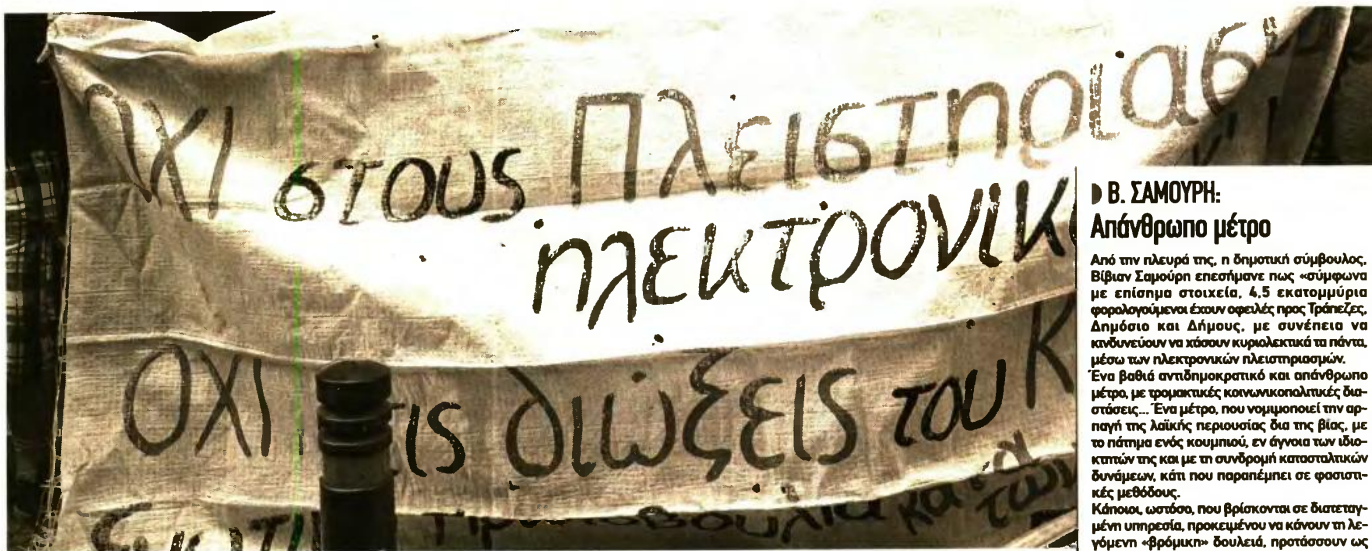 ΟΧΙ στους Πλειστηριασ
ηλεκτρονικ
ΟΧΙ τις διώξεις του Κ
Πρωτοβουλία κατά
των
Β. ΣΑΜΟΥΡΗ:
Απάνθρωπο μέτρο
Από την πλευρά της, η δημοτική σύμβουλος,
Βίβιαν Σαμούρη επεσήμανε πως «σύμφωνα
με επίσημα στοιχεία, 4,5 εκατομμύρια
φορολογούμενοι έχουν οφειλές προς Τράπεζες,
Δημόσιο και Δήμους, με συνέπεια να
κινδυνεύουν να χάσουν κυριολεκτικά τα πάντα,
μέσω των ηλεκτρονικών πλειστηριασμών.
Ένα βαθιά αντιδημοκρατικό και απάνθρωπο
μέτρο, με τρομακτικές κοινωνικοπολιτικές δια-
στάσεις... Ένα μέτρο, που νομιμοποιεί την αρ-
παγή της λαϊκής περιουσίας δια της βίας, με
το πάτημα ενός κουμπιού, εν άγνοια των ιδιο-
κτητών της και με τη συνδρομή κατασταλτικών
δυνάμεων, κάτι που παραπέμπει σε φασιστι-
κές μεθόδους.
Κάποιοι, ωστόσο, που βρίσκονται σε διατεταγ-
μένη υπηρεσία, προκειμένου να κάνουν τη λε-
γόμενη «βρόμικη» δουλειά, προτάσσουν ως